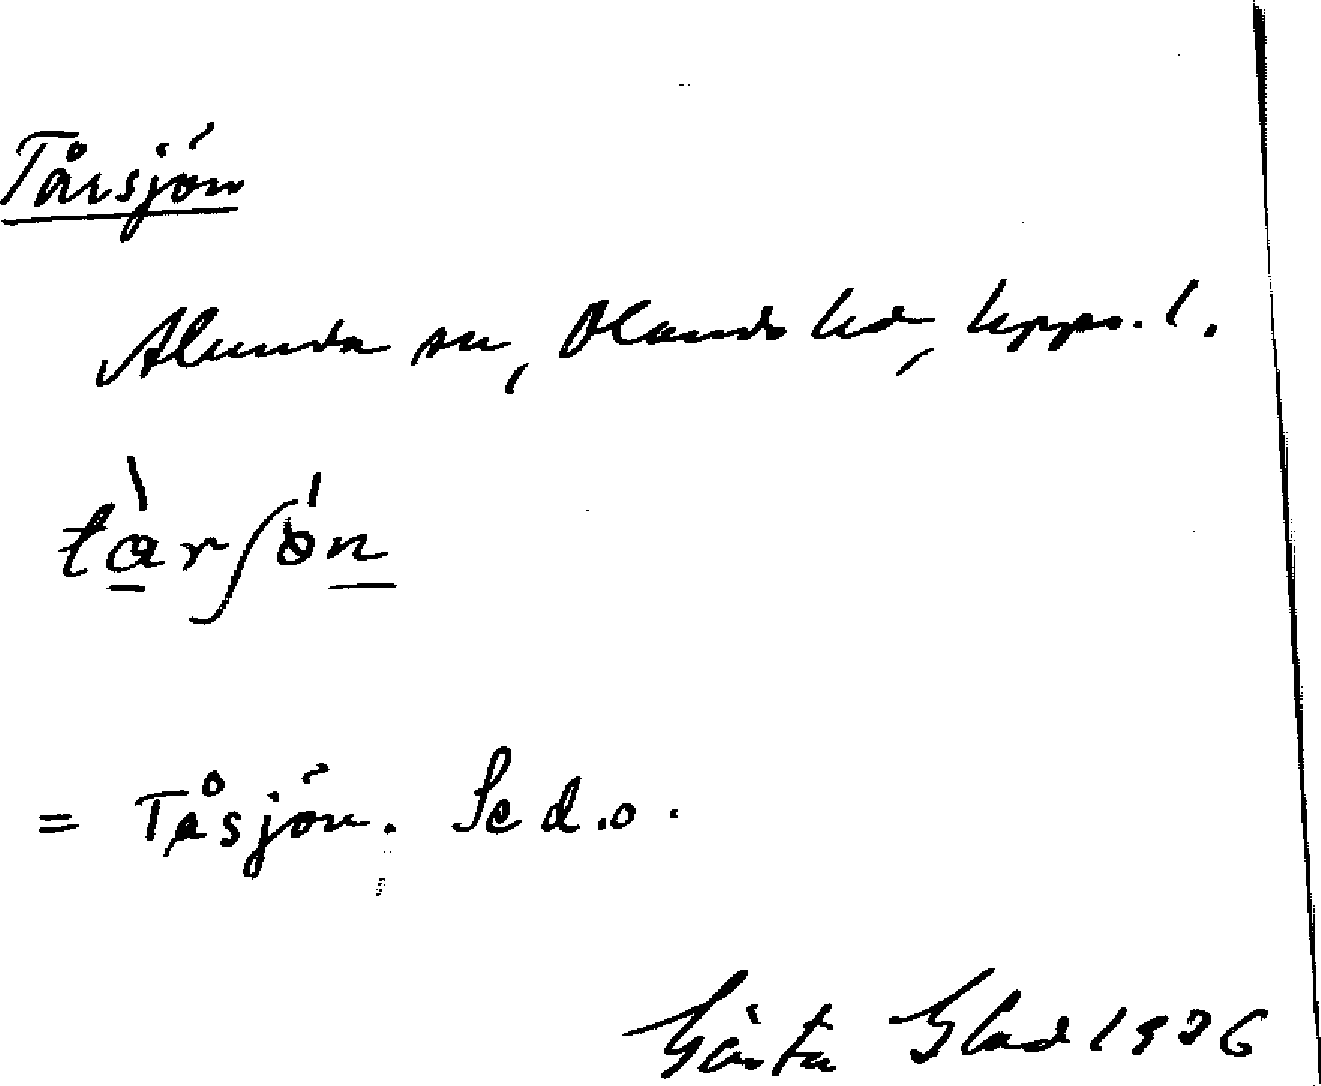 Tårsjön
Alunda sn, Olands hd, Upps. l.
tàrʃön
= Tåsjön. Se d.o.
Gösta Blad 1936